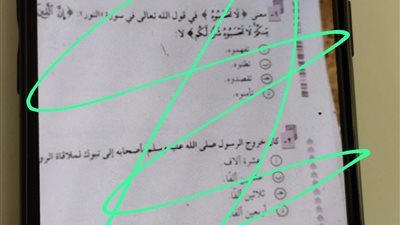 ١- معنى ﴿لَا تَحْسَبُوهُ﴾ في قول الله تعالى في سورة «النور»: ﴿إِنَّ الَّذِينَ
مِنكُمْ لَا تَحْسَبُوهُ شَرًّا لَّكُم﴾ لا:
أ تفهموه.
ب تظنوه.
ج تقصدوه.
د تأمنوه.
٢- كان خروج الرسول صلى الله عليه وسلم بأصحابه إلى تبوك لملاقاة الرو
أ عشرة آلاف.
ب ألفًا.
ج ثلاثين ألفًا.
د أربعين ألفًا.